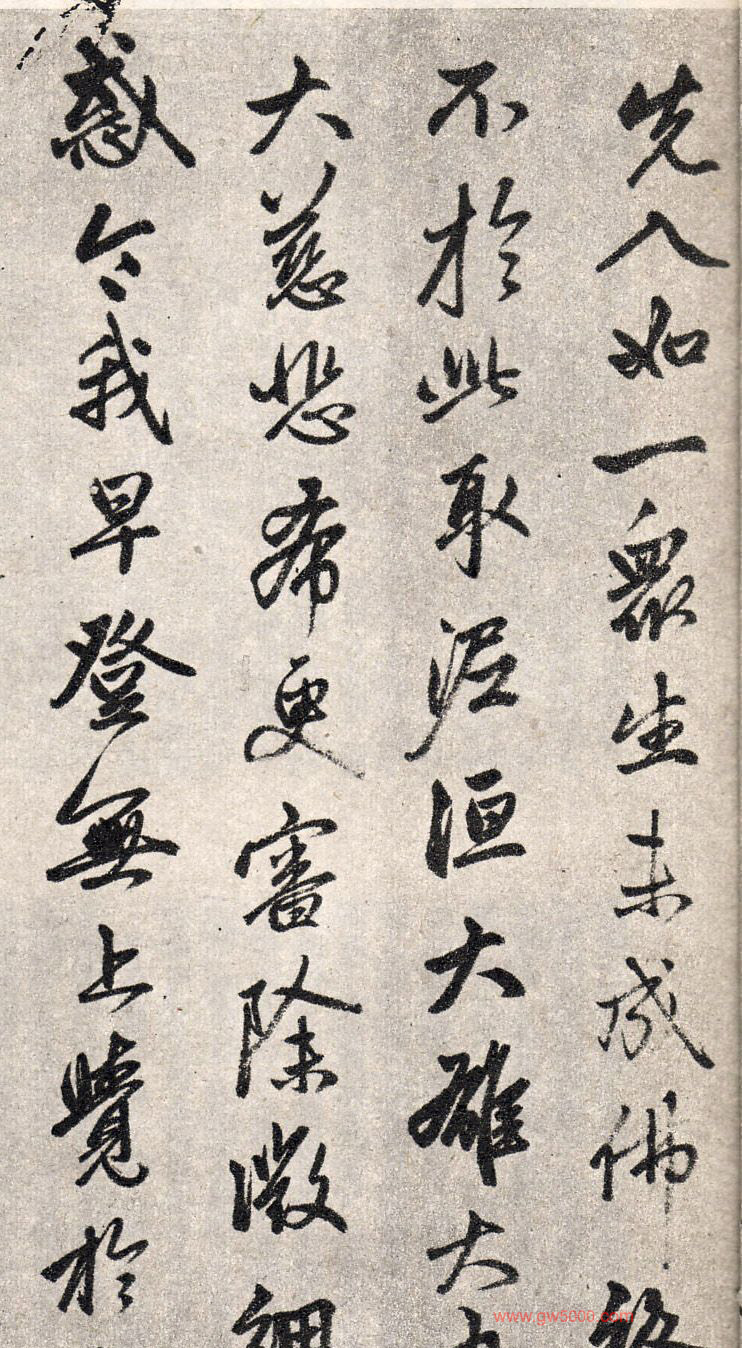 先入如一眾生未成佛
不於此取泥洹大雄大
大慈悲希更審除微細
惑令我早登無上覺於
www.gw5000.com